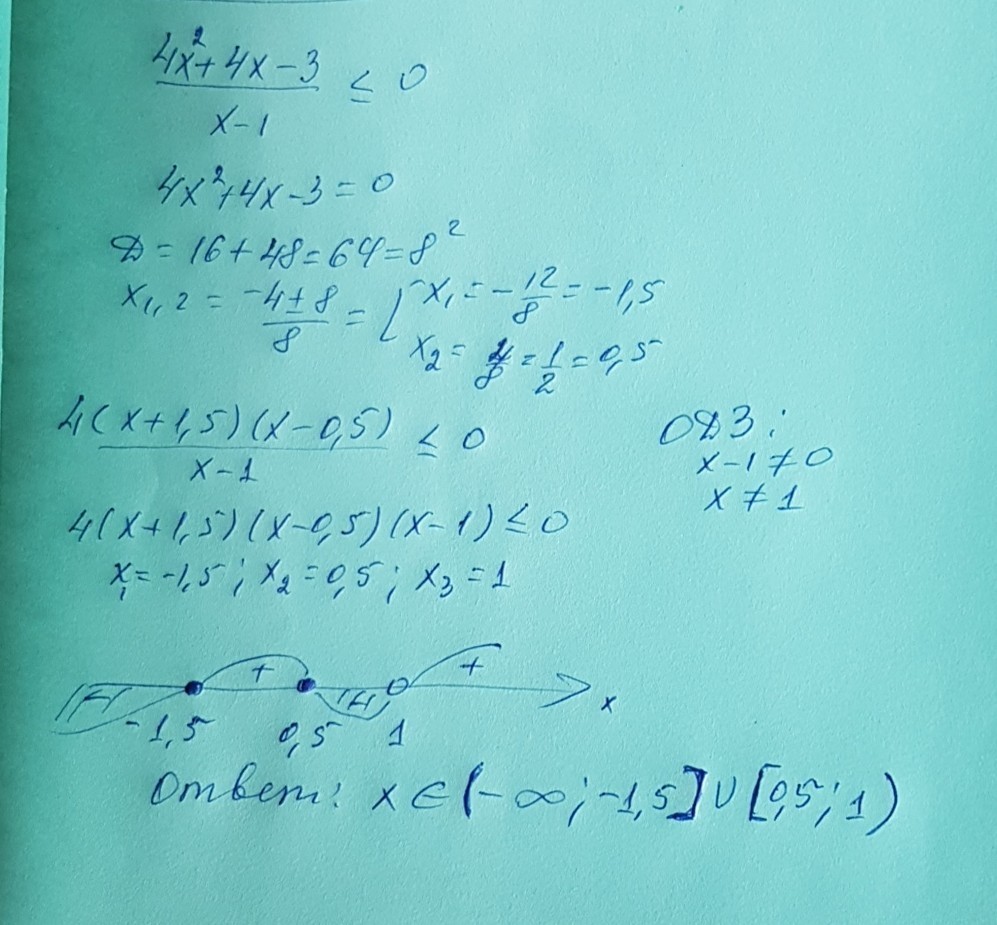 4x²+4x-3 / x-1 ≤ 0
4x²+4x-3=0
D=16+48=64=8²
x₁,₂ = -4±8 / 8 = [ x₁=-12/8=-1,5
x₂=4/8=1/2=0,5
4(x+1,5)(x-0,5) / x-1 ≤ 0
ОДЗ:
x-1≠0
x≠1
4(x+1,5)(x-0,5)(x-1)≤0
x₁=-1,5; x₂=0,5; x₃=1
- + - + x
-1,5 0,5 1
Ответ: x∈(-∞;-1,5]∪[0,5;1)